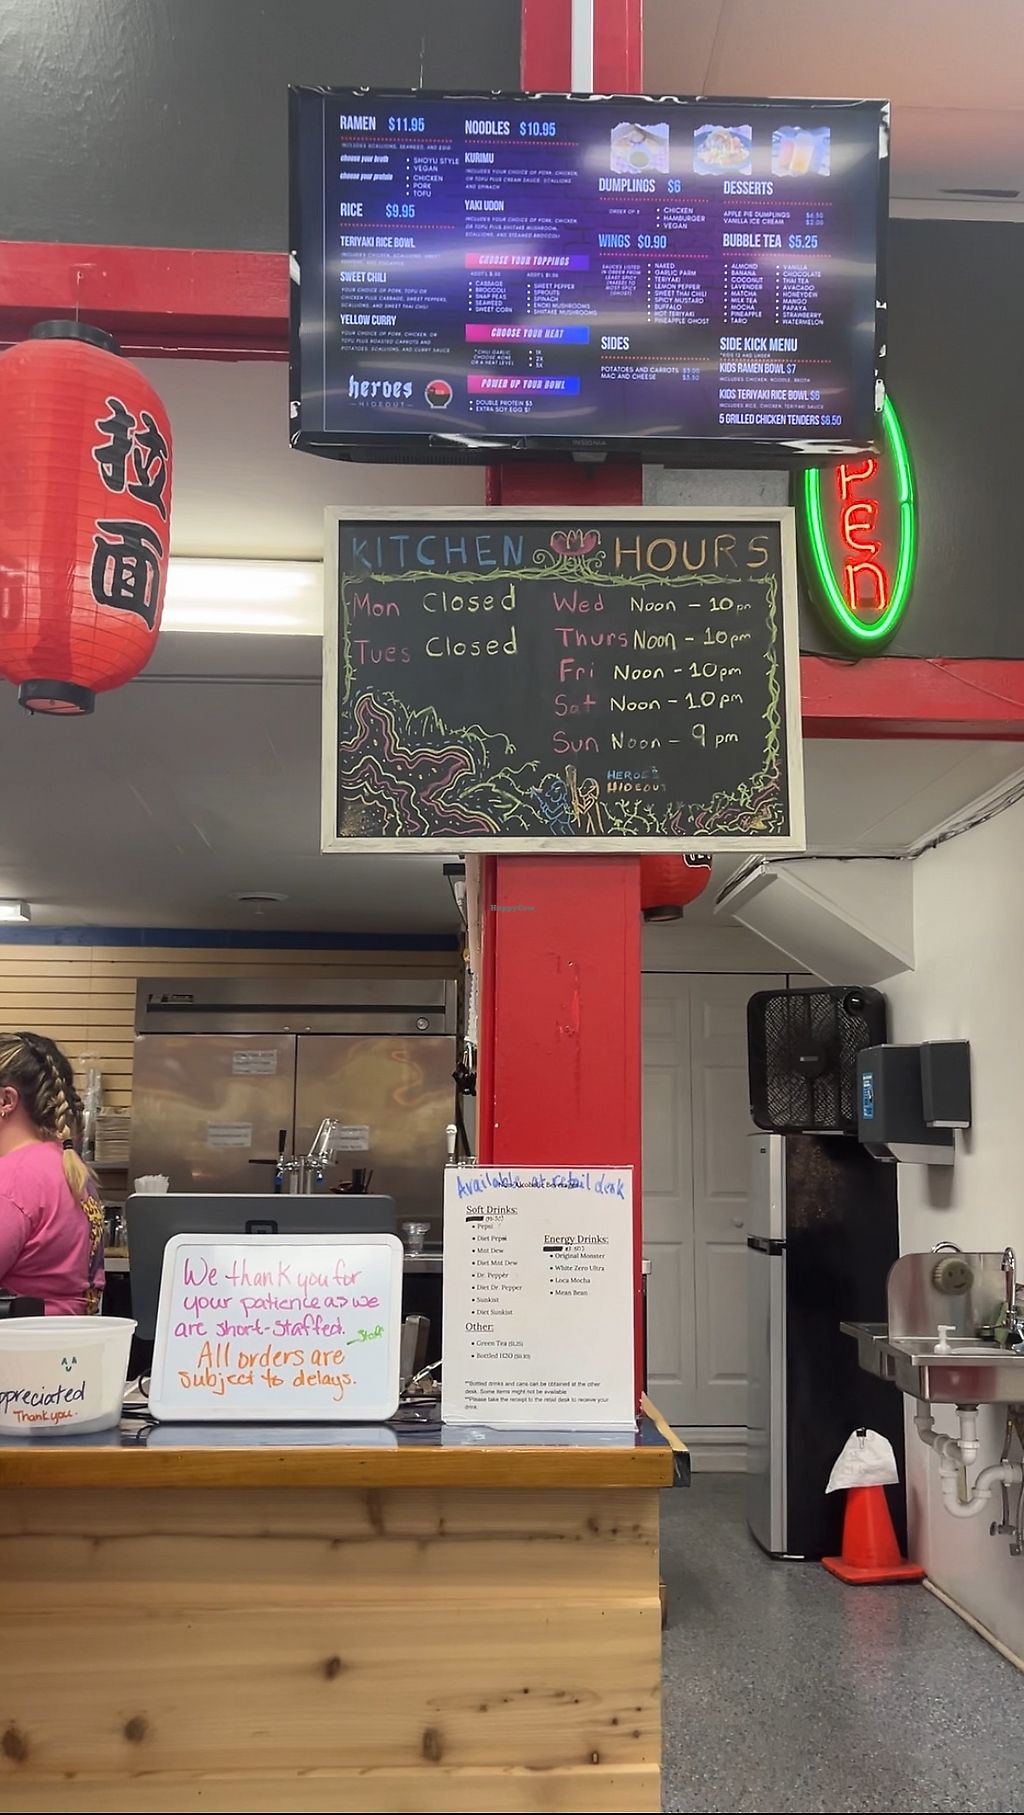 RAMEN $11.95
INCLUDES SCALLIONS, SEAWEED, AND EGG
choose your broth
• SHOYU STYLE
• VEGAN
choose your protein
• CHICKEN
• PORK
• TOFU
RICE $9.95
TERIYAKI RICE BOWL
SWEET CHILI
YOUR CHOICE OF PORK, TOFU OR
CHICKEN PLUS CABBAGE, SWEET PEPPERS,
SCALLIONS, AND SWEET THAI CHILI
YELLOW CURRY
YOUR CHOICE OF PORK, CHICKEN, OR
TOFU PLUS ROASTED CARROTS AND
POTATOES, SCALLIONS, AND CURRY SAUCE
heroes
HIDEOUT
NOODLES $10.95
KURIMU
INCLUDES YOUR CHOICE OF PORK, CHICKEN,
OR TOFU PLUS CREAM SAUCE, SCALLIONS
AND SPINACH
YAKI UDON
INCLUDES YOUR CHOICE OF PORK, CHICKEN,
OR TOFU PLUS SHIITAKE MUSHROOM,
SCALLIONS, AND STEAMED BROCCOLI
CHOOSE YOUR TOPPINGS
• CABBAGE
• BROCCOLI
• SNAP PEAS
• SEAWEED
• SWEET CORN
• SWEET PEPPER
• SPROUTS
• SPINACH
• ENOKI MUSHROOMS
• SHIITAKE MUSHROOMS
CHOOSE YOUR HEAT
*CHILI GARLIC
CHOOSE NONE
OR A HEAT LEVEL
• 1X
• 2X
• 3X
POWER UP YOUR BOWL
• DOUBLE PROTEIN $3
• EXTRA SOY EGG $1
DUMPLINGS $6
ORDER OF 5
• CHICKEN
• HAMBURGER
• VEGAN
WINGS $0.90
SAUCES LISTED
IN ORDER FROM
LEAST SPICY
(NAKED) TO
MOST SPICY
(GHOST)
• NAKED
• GARLIC PARM
• TERIYAKI
• LEMON PEPPER
• SWEET THAI CHILI
• SPICY MUSTARD
• BUFFALO
• HOT TERIYAKI
• PINEAPPLE GHOST
SIDES
POTATOES AND CARROTS $3.00
MAC AND CHEESE $3.50
DESSERTS
APPLE PIE DUMPLINGS $6.50
VANILLA ICE CREAM $2.00
BUBBLE TEA $5.25
• ALMOND
• BANANA
• COCONUT
• LAVENDER
• MATCHA
• MILK TEA
• MOCHA
• PINEAPPLE
• TARO
• VANILLA
• CHOCOLATE
• THAI TEA
• AVOCADO
• HONEYDEW
• MANGO
• PAPAYA
• STRAWBERRY
• WATERMELON
SIDE KICK MENU
*KIDS 12 AND UNDER
KIDS RAMEN BOWL $7
INCLUDES CHICKEN, NOODLE, BROTH
KIDS TERIYAKI RICE BOWL $6
INCLUDES RICE, CHICKEN, TERIYAKI SAUCE
5 GRILLED CHICKEN TENDERS $6.50
INSIGNIA
拉
面
PEN
KITCHEN HOURS
Mon Closed
Tues Closed
Wed Noon - 10pm
Thurs Noon - 10pm
Fri Noon - 10pm
Sat Noon - 10pm
Sun Noon - 9 pm
HEROES
HIDEOUT
HappyCow
We thank you for
your patience as we
are short-staffed.
-Staff
All orders are
subject to delays.
ppreciated
Thank you.
Available at retail desk
Soft Drinks:
• Pepsi
• Diet Pepsi
• Mnt Dew
• Diet Mnt Dew
• Dr. Pepper
• Diet Dr. Pepper
• Sunkist
• Diet Sunkist
Energy Drinks:
• Original Monster
• White Zero Ultra
• Loca Mocha
• Mean Bean
Other:
• Green Tea ($1.25)
• Bottled H2O
**Bottled drinks and cans can be obtained at the other
desk. Some items might not be available
**Please take the receipt to the retail desk to receive your
drink.